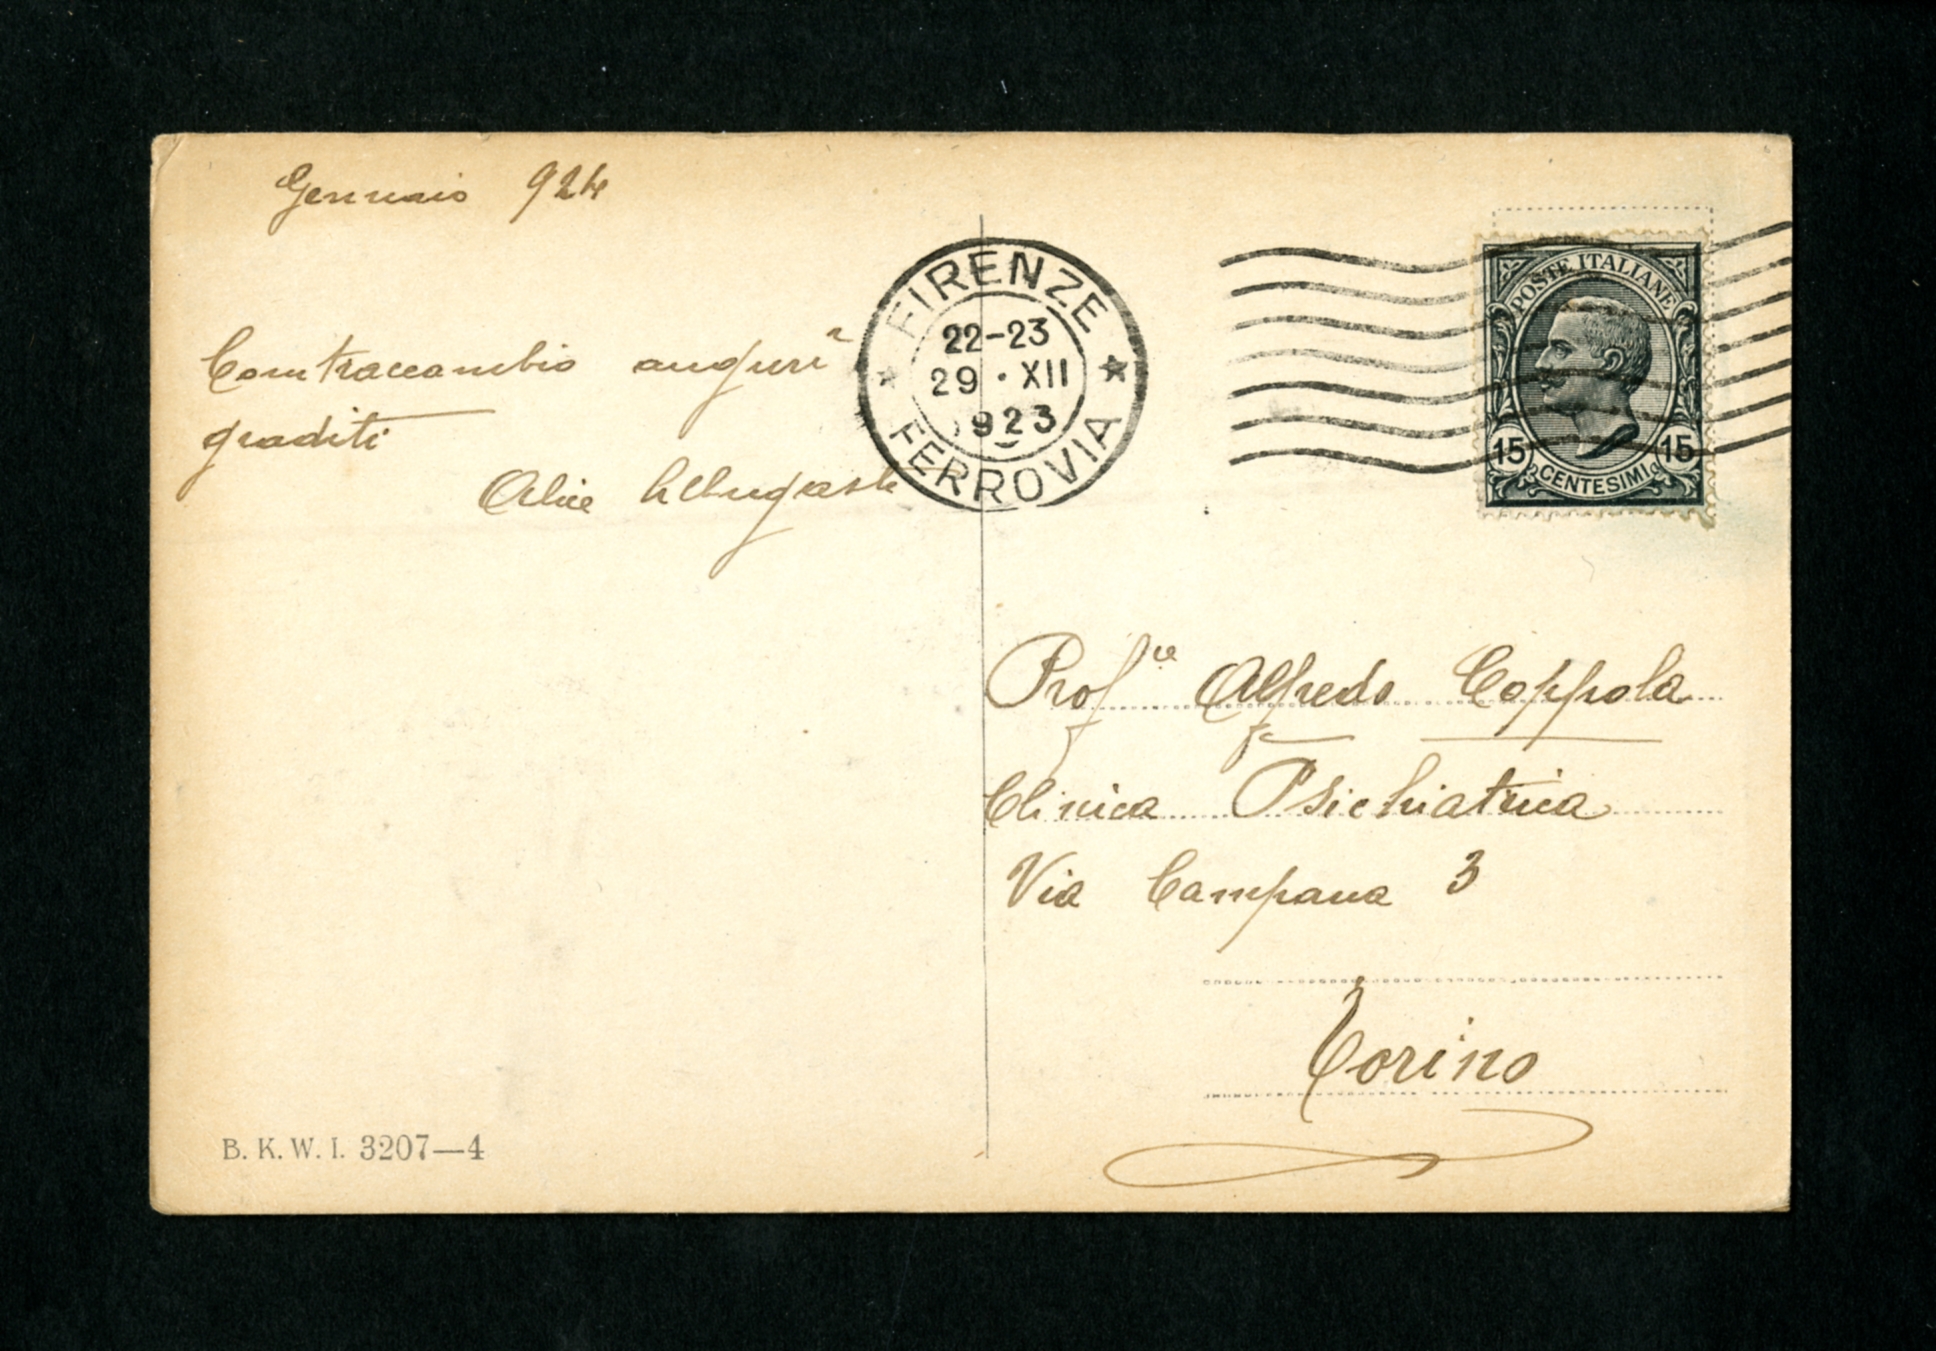 Gennaio 924
Contraccambio auguri
graditi
Alice
FIRENZE
22-23
29 · XII
923
FERROVIA
POSTE ITALIANE
15 15
CENTESIMI
Prof.re Alfredo Coppola
Clinica Psichiatrica
Via Campana 3
Torino
B. K. W. I. 3207—4